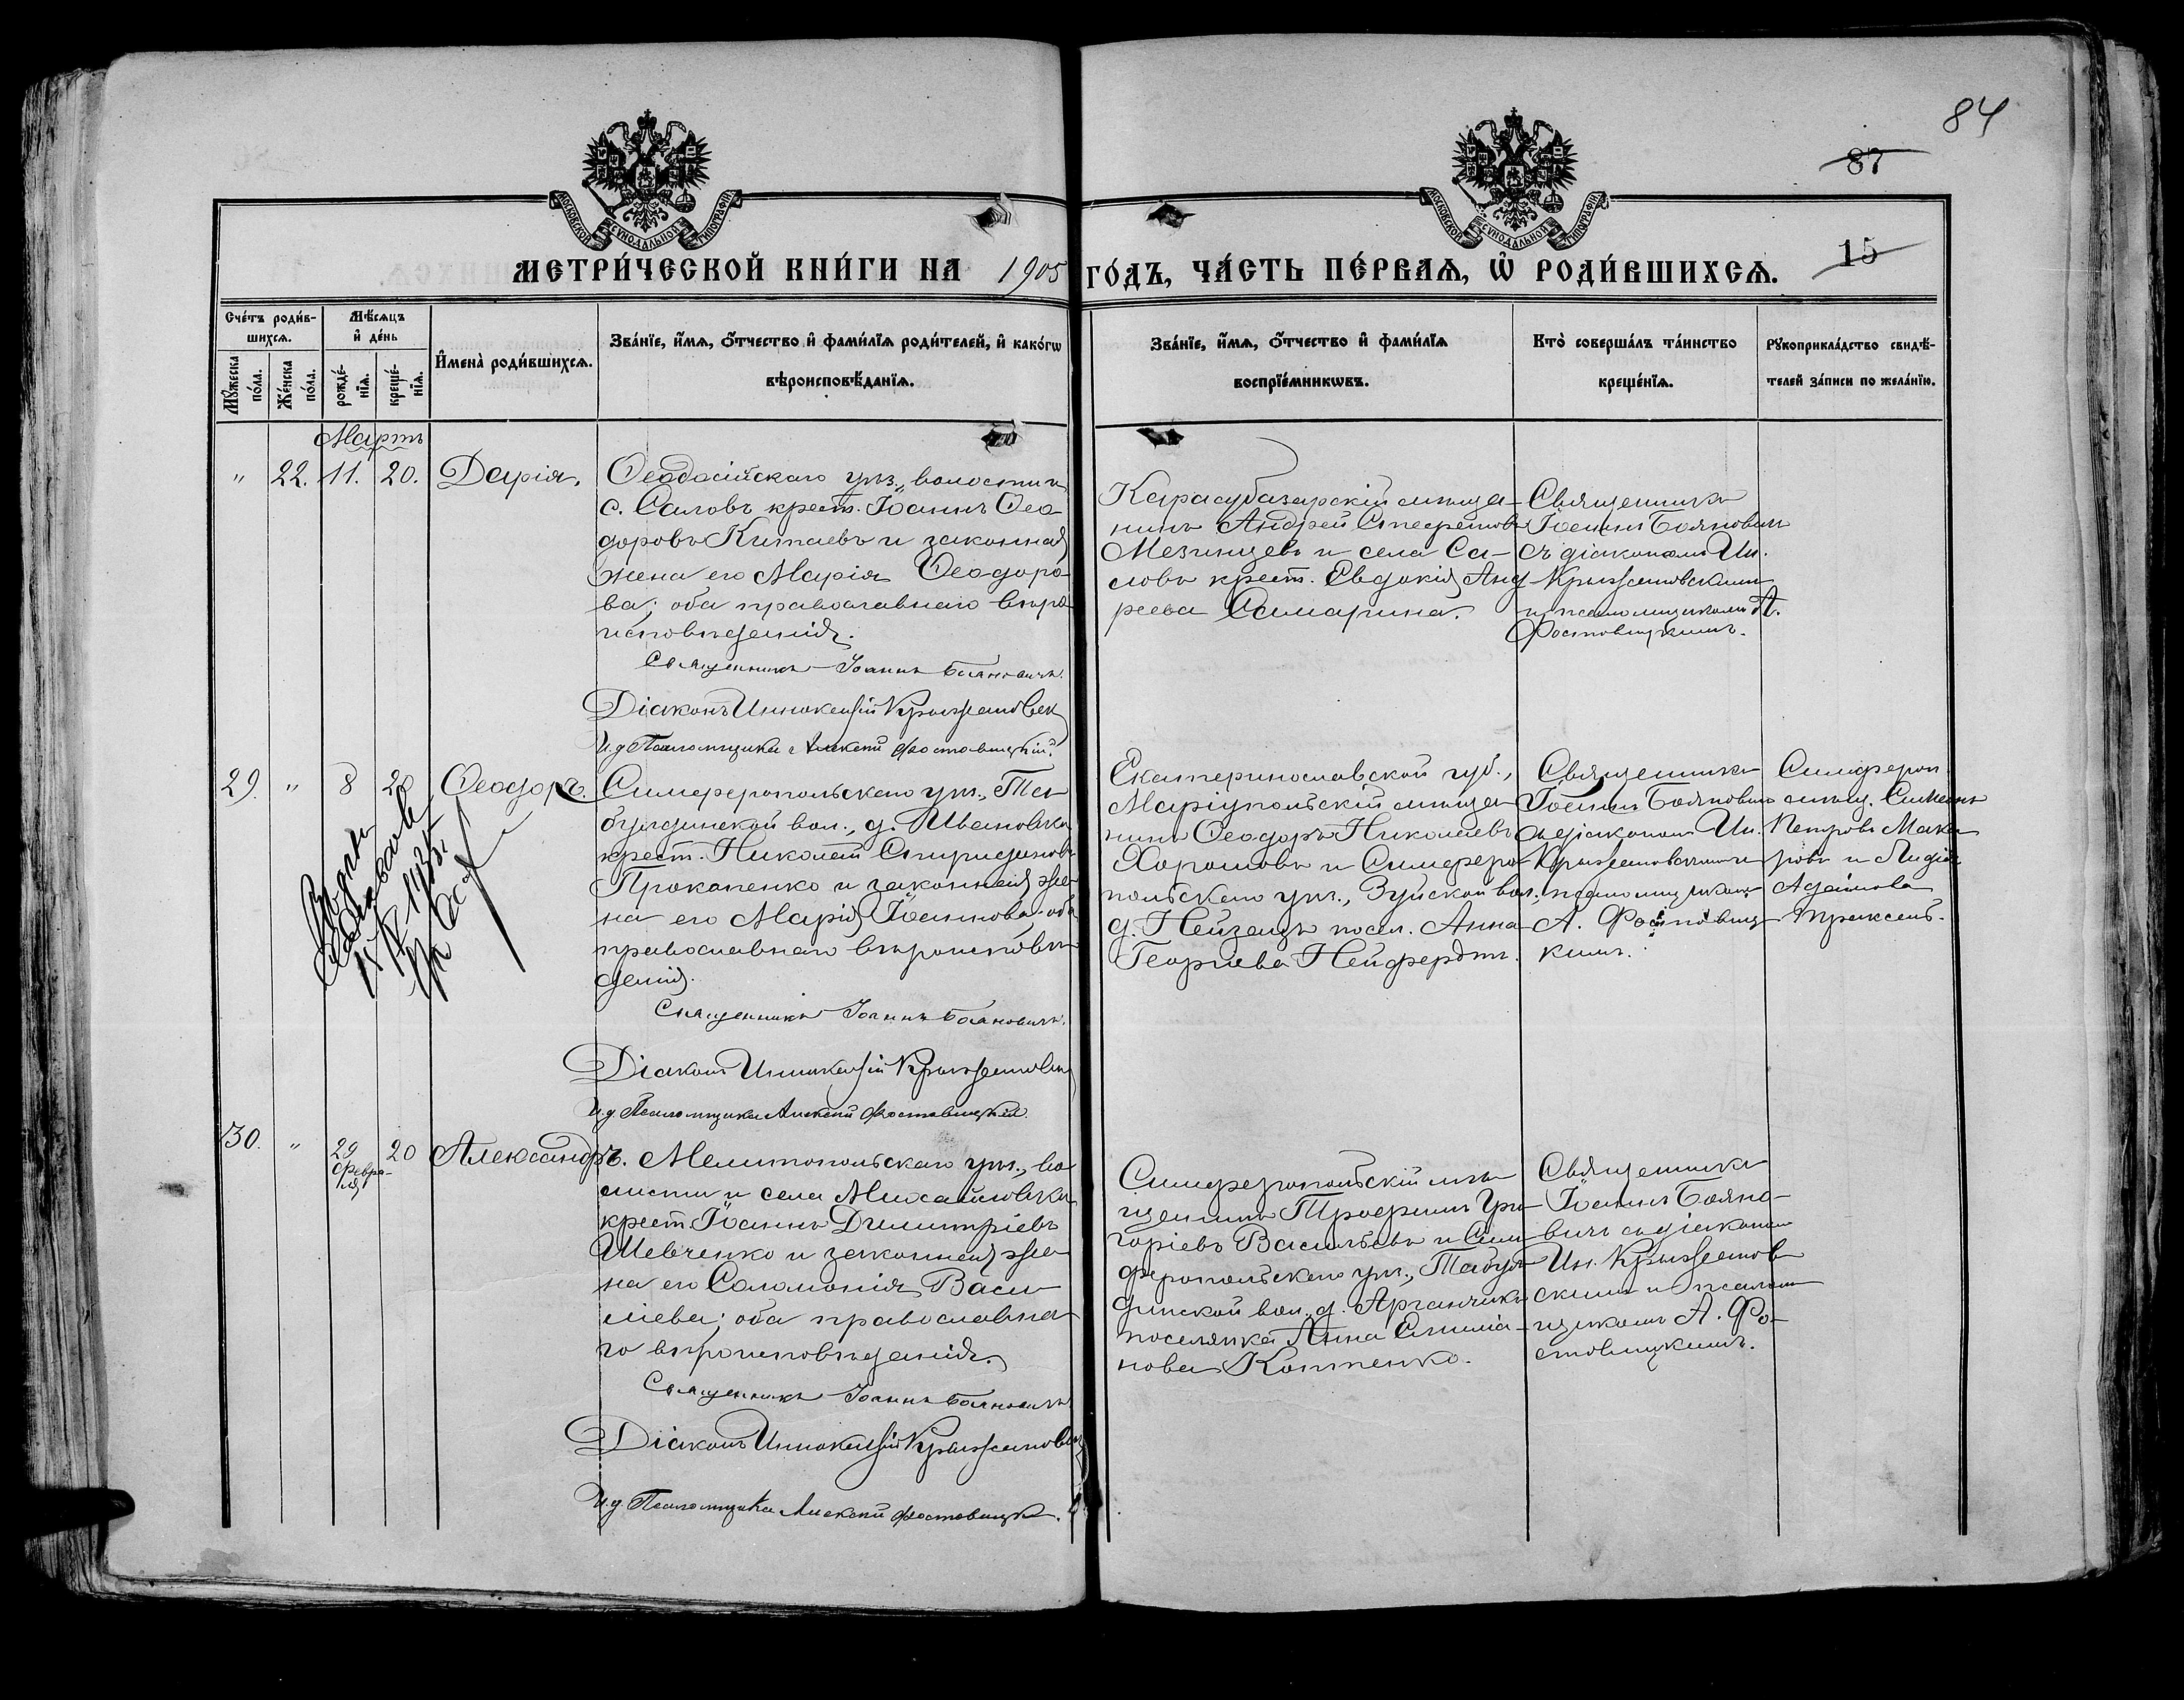 84
87
15
МОСКОВСКОЙ СѴНОДАЛЬНОЙ ТИПОГРАФІИ
МОСКОВСКОЙ СѴНОДАЛЬНОЙ ТИПОГРАФІИ
МЕТРИ́ЧЕСКОЙ КНИ́ГИ НА 1905 ГО́ДЪ, ЧА́СТЬ ПЕ́РВАѦ, Ѡ҆ РОДИ́ВШИХСѦ.
Сче́тъ роди́в-
шихсѧ.
Мꙋ́жеска по́ла.
Же́нска по́ла.
Мѣ́сѧцъ
и҆ де́нь
рожде́-
нїѧ.
креще́-
нїѧ.
И҆мена̀ роди́вшихсѧ.
Зва́нїе, и҆́мѧ, ѻ҆́тчество и҆ фами́лїѧ роди́телей, и҆ како́гѡ
вѣроисповѣ́данїѧ.
Зва́нїе, и҆́мѧ, ѻ҆́тчество и҆ фами́лїѧ
воспрїе́мникѡвъ.
Кто̀ соверша́лъ та́инство
креще́нїѧ.
Рꙋкоприкла́дство свидѣ́-
телей за́писи по жела́нїю.
Мартъ
" 22. 11. 20. Дарія.
Ѳеодосійскаго уѣз., волости и
с. Саловъ крест. Іоаннъ Ѳео-
доровъ Китаевъ и законная
жена его Марія Ѳеодоро-
ва; оба православнаго вѣро-
исповѣданія.
Священникъ Іоаннъ Бояновичъ.
Діаконъ Иннокентій Крыжановск
И.д. Псаломщика Алексѣй Фостовицкій.
Карасубазарскій мѣща-
нинъ Андрей Стефановъ
Мезинцевъ и села Са-
ловъ крест. Евдокія Анд-
реева Самарина.
Священникъ
Іоаннъ Бояновичъ
съ діакономъ Ин.
Крыжановскимъ
и псаломщикомъ А.
Фостовицкимъ.
29. " 8 20 Ѳеодоръ.
Симферопольскаго уѣз., Та-
булдинской вол., д. Ивановки
крест. Николай Спиридоновъ
Прокопенко и законная же-
на его Марія Іоаннова; оба
православнаго вѣроисповѣ-
данія.
Священникъ Іоаннъ Бояновичъ.
Діаконъ Иннокентій Крыжановск
И.д. Псаломщика Алексѣй Фостовицкій.
Екатеринославской губ.,
Маріупольскій мѣща-
нинъ Ѳеодоръ Николаевъ
Хорошовъ и Симферо-
польскаго уѣз., Зуйской вол.
д. Нейзацъ посел. Анна
Георгіева Нейфердтъ.
Священникъ
Іоаннъ Бояновичъ
съ діакономъ Ин.
Крыжановскимъ и
псаломщикомъ
А. Фостовиц-
кимъ.
Симфероп.
мѣщ. Симеонъ
Петровъ Мака-
ровъ и Лидія
Адамова
30. " 29 Февра-
ля 20 Александръ.
Мелитопольскаго уѣз., во-
лости и села Михайловки
крест. Іоаннъ Димитріевъ
Шевченко и законная же-
на его Соломонія Васи-
ліева; оба православна-
го вѣроисповѣданія.
Священникъ Іоаннъ Бояновичъ
Діаконъ Иннокентій Крыжановск
И.д. Псаломщика Алексѣй Фостовицкі.
Симферопольскій мѣ-
щанинъ Трофимъ Гри-
горіевъ Васильевъ и Сим-
феропольскаго уѣз., Табул-
динской вол., д. Арганчика
поселянка Анна Стилія-
нова Коппенко.
Священникъ
Іоаннъ Бояно-
вичъ съ діакономъ
Ин. Крыжанов-
скимъ и псалом-
щикомъ А. Фо-
стовицкимъ.